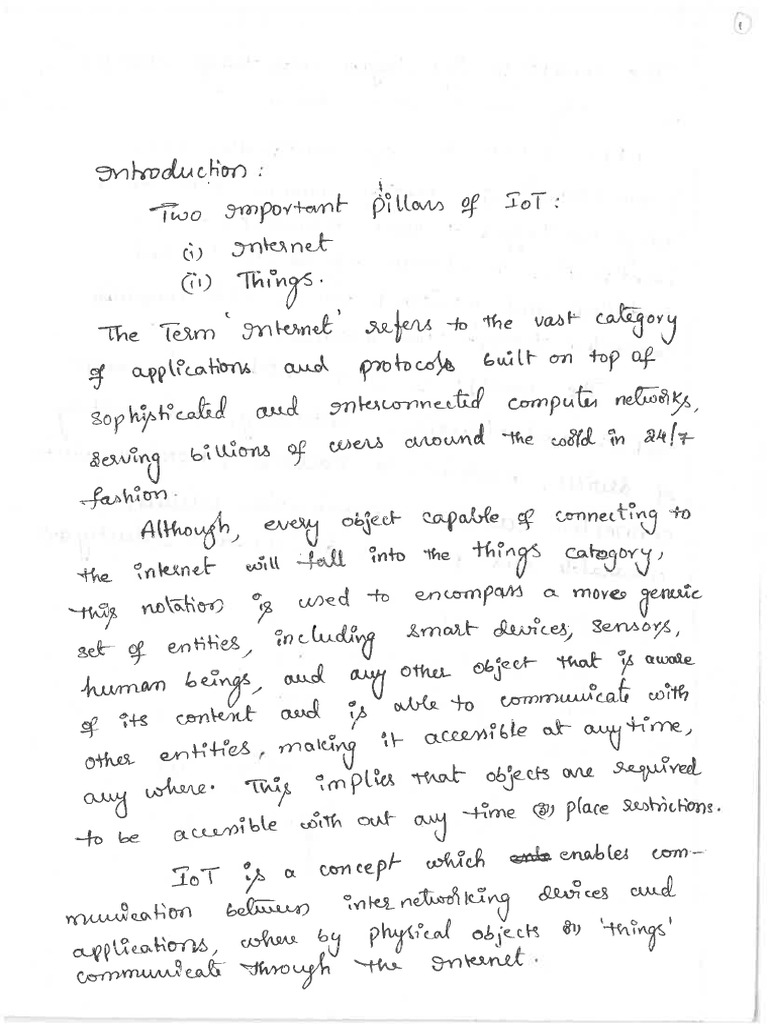 1
Introduction:
Two important Pillars of IoT:
(i) Internet
(ii) Things.
The Term 'Internet' refers to the vast category
of applications and protocols built on top of
sophisticated and interconnected computer networks,
serving billions of users around the world in 24/7
fashion.
Although, every object capable of connecting to
the internet will fall into the things category,
this notation is used to encompass a more generic
set of entities, including smart devices, sensors,
human beings, and any other object that is aware
of its content and is able to communicate with
other entities, making it accessible at any time,
any where. This implies that objects are required
to be accessible with out any time (or) place restrictions.
IoT is a concept which enables com-
munication between inter networking devices and
applications, where by physical objects (or) 'things'
communicate through the Internet.